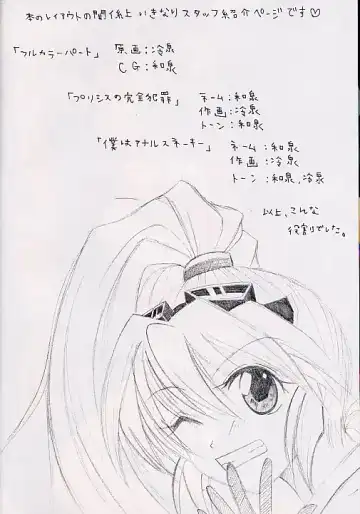 本のレイアウトの関係上いきなりスタッフ紹介ページです♡
「フルカラーパート」 原画:冷泉
CG:和泉
「プリシスの完全犯罪」 ネーム:和泉
作画:冷泉
トーン:和泉
「僕はアナルスネーキー」 ネーム:和泉
作画:冷泉
トーン:和泉,冷泉
以上、こんな
役割でした。